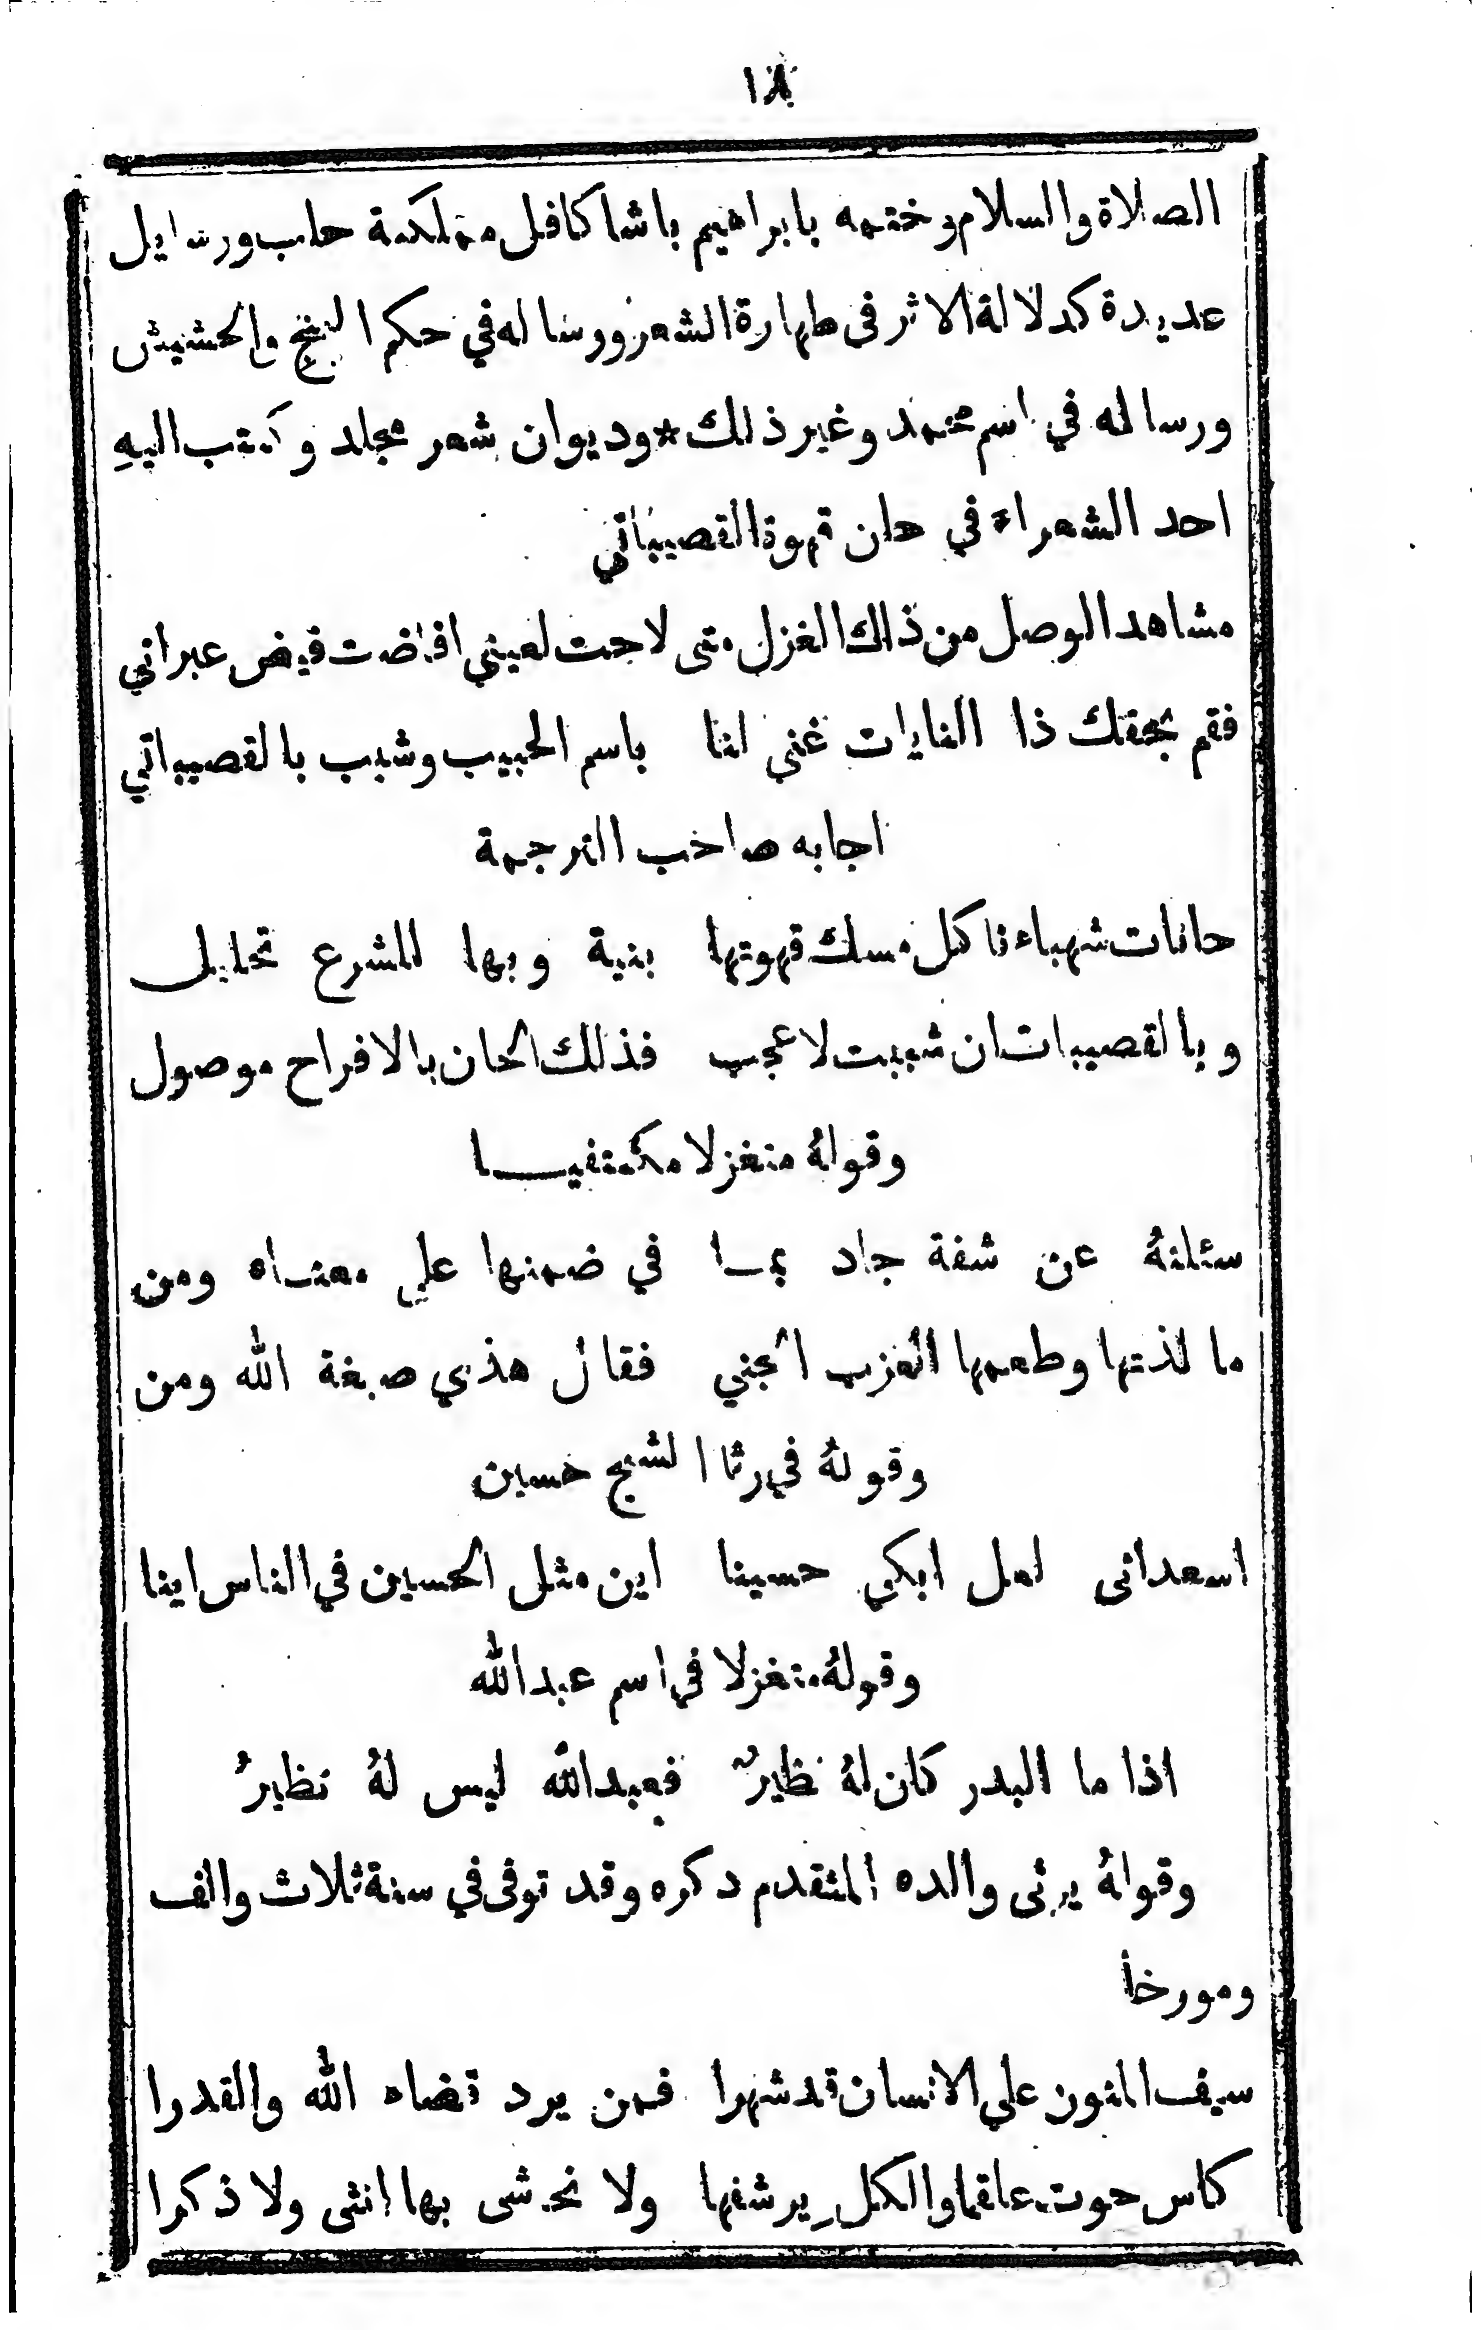 ١٨
الصلاة والسلام وختمه بابراهيم باشا كافل مملكة حلب ورسايل
عديدة كدلالة الاثر في طهارة الشعر ورساله في حكم البنج والحشيش
ورساله في اسم محمد وغير ذلك * وديوان شعر مجلد وكتب اليهِ
احد الشعراء في حان قهوة القصيباتي
مشاهد الوصل من ذاك الغزل متى لاحت لعيني افاضت فيض عبراتي
فقم بحقك ذا النايات غني لنا باسم الحبيب وشبب بالقصيباتي
اجابه صاحب الترجمة
حانات شهباءنا كل مسك قهوتها بنية وبها للشرع تحليل
وبالقصيبات ان شببت لا عجب فذلك الحان بالافراح موصول
وقولهُ متغزلا مكتفيا
سئلتهُ عن شفة جاد بما في ضمنها علي معناه ومن
ما لذتها وطعمها العزب الجني فقال هذي صبغة الله ومن
وقولهُ في رثا الشيخ حسين
اسعداني لعل ابكي حسينا اين مثل الحسين في الناس اينا
وقولهُ متغزلا في اسم عبدالله
اذا ما البدر كان لهُ نظيرٌ فعبدالله ليس لهُ نظيرُ
وقولهُ يرثى والده المتقدم دكره وقد توفى في سنة ثلاث والف
ومورخاً
سيف المنون علي الانسان قد شهرا فمن يرد قضاه الله والقدرا
كاس حوت علقما والكلِ يرشفها ولا تخشى بها انثى ولا ذكرا